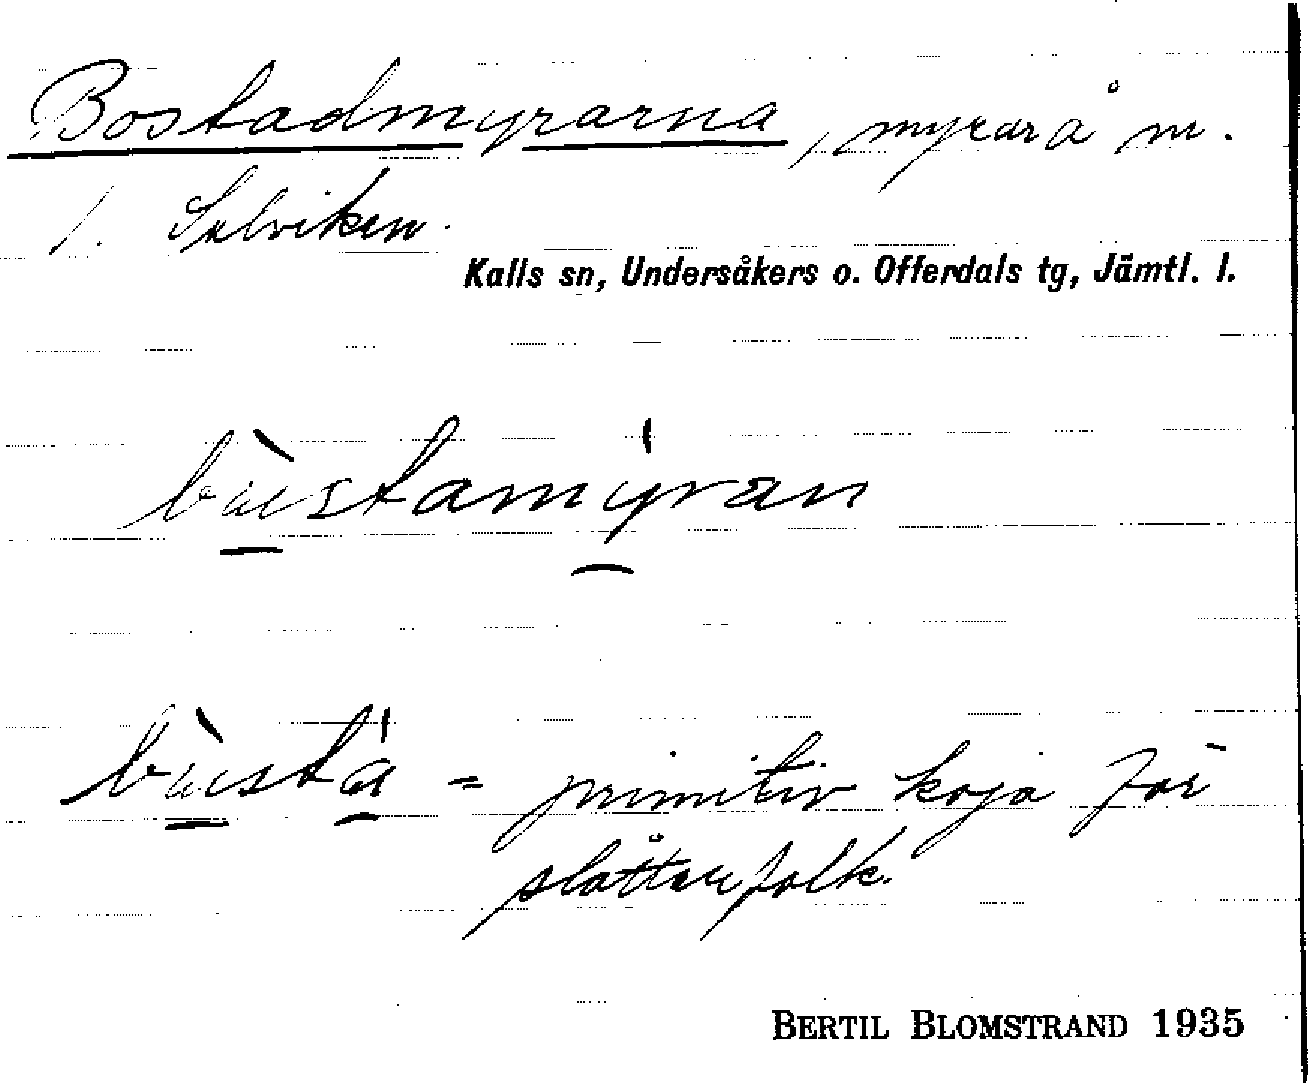 Bostadmyrarna, myrar å m.
1. Salviken.
Kalls sn, Undersåkers o. Offerdals tg, Jämtl. l.
bùstamyran
bùsta = primitiv koja för
slåttarefolk.
BERTIL BLOMSTRAND 1935